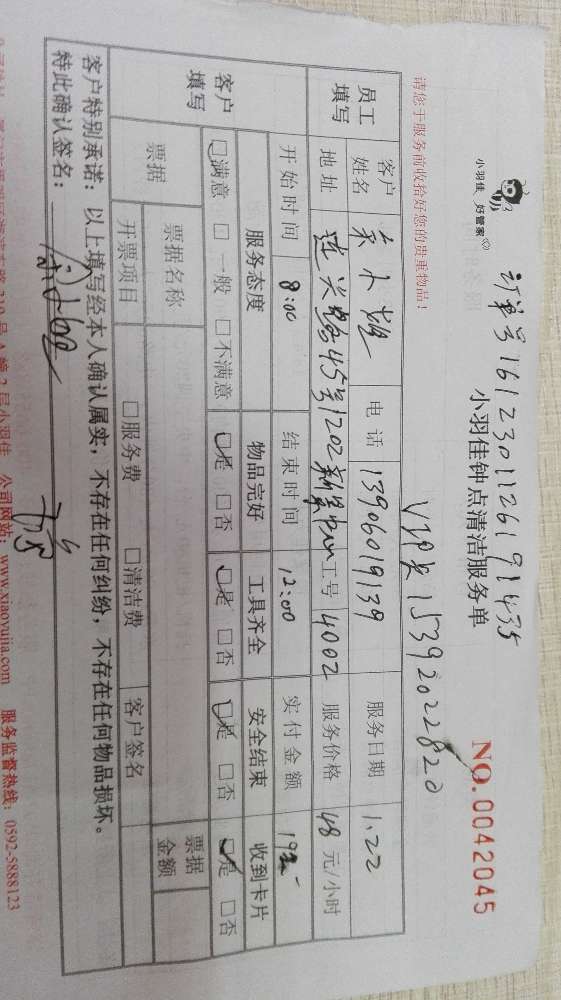 小羽佳 好管家
订单号1612301126191435
小羽佳钟点清洁服务单
NO.0042045
VIP卡15392022820
请您于服务前收拾好您的贵重物品！
员工填写
客户姓名 电话 13906019139 服务日期 1.22
地址 莲岳路45号1202 工号 4002 服务价格 48 元/小时
开始时间 8:00 结束时间 12:00 实付金额 192
客户填写
服务态度 物品完好 工具齐全 安全结束 收到卡片
☑满意 □一般 □不满意 ☑是 □否 ☑是 □否 ☑是 □否 ☑是 □否
票据 票据名称 票据金额
开票项目 □服务费 □清洁费 客户签名
客户特别承诺：以上填写经本人确认属实，不存在任何纠纷，不存在任何物品损坏。
特此确认签名：
210号A幢2层小羽佳 公司网站：www.xiaoyujia.com 服务监督热线：0592-5888123